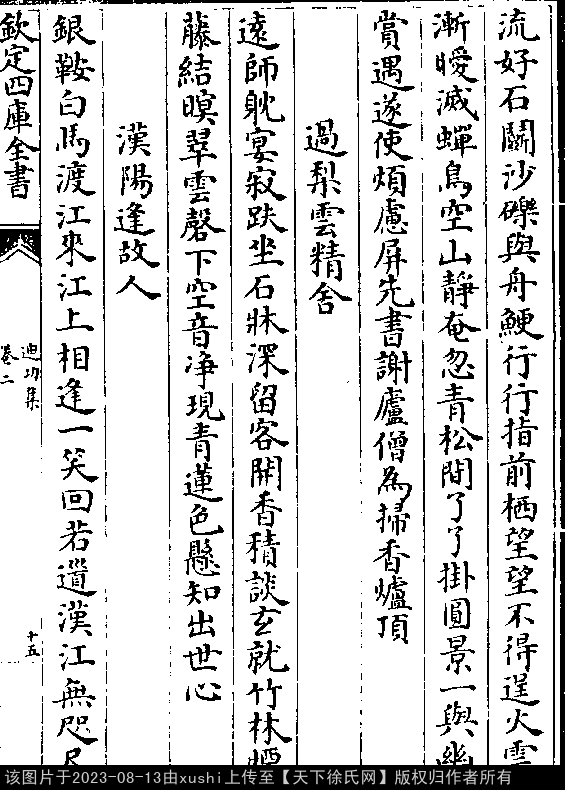 流好石闘沙礫與舟鯁行行指前栖望望不得逞火雲
漸曖滅蟬鳥空山靜奄忽青松間了了掛圓景一與幽
賞遇遂使煩慮屏先書謝廬僧為掃香爐頂
過梨雲精舍
遠師躭宴寂趺坐石牀深留客開香積談玄就竹林煙
藤結暝翠雲磬下空音净現青蓮色懸知出世心
漢陽逢故人
銀鞍白馬渡江來江上相逢一笑回若道漢江無咫尺
欽定四庫全書
迪功集
卷二
十五
该图片于2023-08-13由xushi上传至【天下徐氏网】版权归作者所有